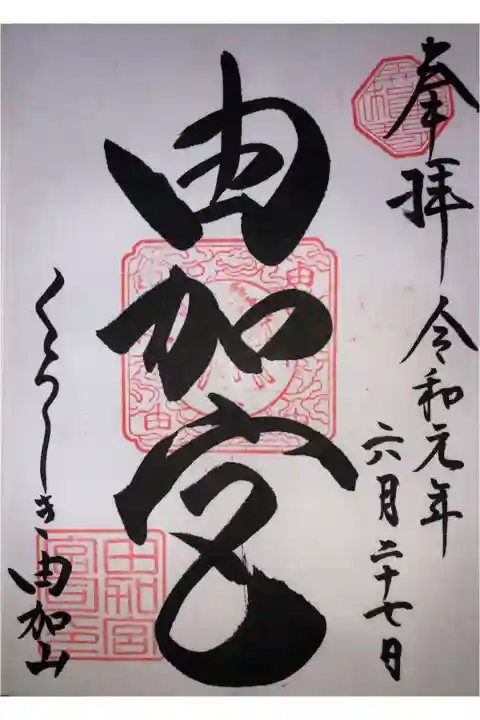 奉拝
令和元年
六月二十七日
由加宮
くらしき
由加山